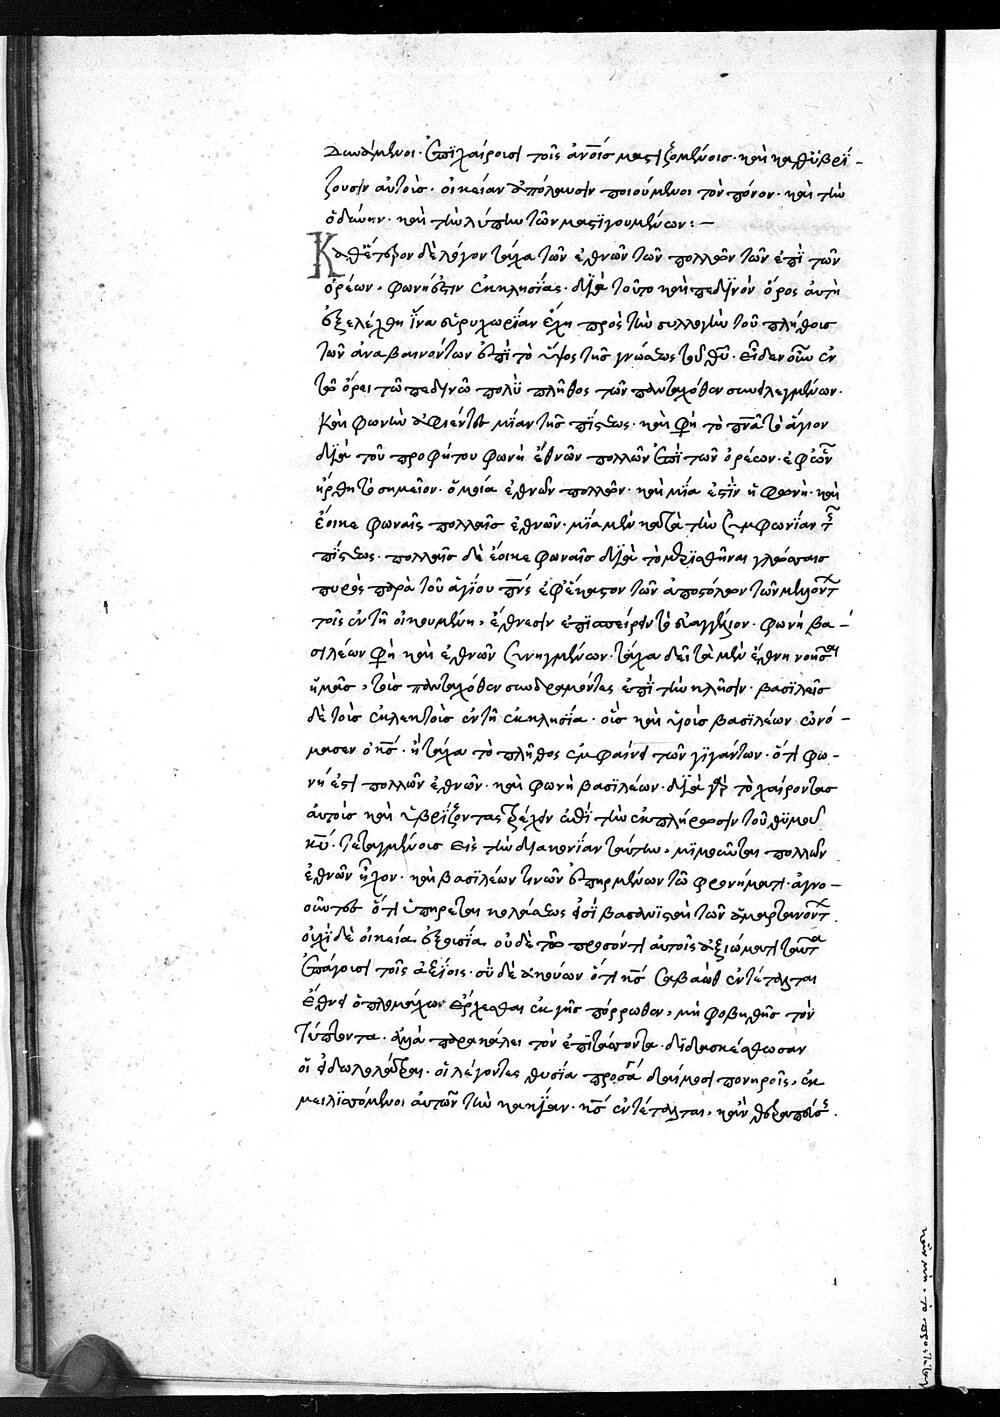 δυνάμενοι. ἐπιχαίρουσι τοῖς ἀν̅οις μαστιζομένοις. καὶ καθυβρί-
ζουσιν αὐτούς. οἰκείαν ἀπόλαυσιν ποιούμενοι τὸν πόνον. καὶ τὴν
ὀδύνην. καὶ τὴν λύπην τῶν μαστιγουμένων:-
Καθ' ἕτερον δὲ λόγον τάχα τῶν ἐθνῶν τῶν πολλῶν τῶν ἐπὶ τῶν
ὀρέων. φωνή ἐστιν ἐκκλησίας. διὰ τοῦτο καὶ πεδινὸν ὄρος αὐτῇ
ἐξελέχθη ἵνα εὐρυχωρίαν ἔχῃ πρὸς τὴν συλλογὴν τοῦ πλήθους
τῶν ἀναβαινόντων ἐπὶ τὸ ὕψος τῆς γνώσεως τοῦ θ̅υ. εἶδεν οὖν ἐν
τῷ ὄρει τῷ πεδινῷ πολὺ πλῆθος τῶν πανταχόθεν συνειλεγμένων.
καὶ φωνὴν ἀφιέντων μίαν τῆς πίστεως. καὶ φη τὸ πν̅α τὸ ἅγιον
διὰ τοῦ προφήτου φωνὴ ἐθνῶν πολλῶν ἐπὶ τῶν ὀρέων. ἐφ' ὧν
ἤρθη τὸ σημεῖον. ὁμοία ἐθνῶν πολλῶν. καὶ μία ἐστὶν ἡ φωνὴ. καὶ
ἔοικε φωναῖς πολλαῖς ἐθνῶν. μία μὲν κατὰ τὴν συμφωνίαν τῆς
πίστεως. πολλαῖς δὲ ἔοικε φωναῖς διὰ τὸ μερισθῆναι γλώσσαις
πυρὸς παρὰ τοῦ ἁγίου πν̅ς ἐφ' ἕκαστον τῶν ἀποστόλων τῶν μελλόντ
τοῖς ἐν τῇ οἰκουμένῃ, ἔθνεσιν ἐπισπείρειν τὸ εὐαγγέλιον. φωνὴ βα-
σιλέων φη καὶ ἐθνῶν συνηγμένων. τάχα δεῖ τὰ μὲν ἔθνη νοῆσαι
ἡμᾶς, τοὺς πανταχόθεν συνδραμόντας ἐπὶ τὴν κλῆσιν. βασιλεῖς
δὲ τοὺς ἐκλεκτοὺς ἐν τῇ ἐκκλησίᾳ. οὓς καὶ υἱοὺς βασιλέων ὠνό-
μασεν ὁ κ̅ς. ἢ τάχα τὸ πλῆθος ἐμφαίνει τῶν γιγάντων. ὅτι φω-
νή ἐστι πολλῶν ἐθνῶν. καὶ φωνὴ βασιλέων. διὰ γὰρ τὸ χαίροντας
αὐτοὺς καὶ ὑβρίζοντας ἔχειν ἐπὶ τὴν ἐκπλήρωσιν τοῦ θυμοῦ
κ̅υ. τεταγμένους εἰς τὴν διακονίαν ταύτην, μιμοῦνται πολλῶν
ἐθνῶν ἦχον. καὶ βασιλέων τινῶν ἐπηρμένων τῷ φρονήματι. ἀγνο-
οῦντες ὅτι ὑπηρέται κολάσεως εἰσὶ βασανισταὶ τῶν ἁμαρτανόντ
οὐχὶ δὲ οἰκείᾳ ἐξουσίᾳ, οὐδὲ τῷ προσόντι αὐτοῖς ἀξιώματι ταῦτα
ἐπάγουσι τοῖς ἀξίοις. σὺ δὲ ἀκούων ὅτι κ̅ς σαβαὼθ ἐντέταλται
ἔθνει ὁπλομάχῳ ἔρχεσθαι ἐκ γῆς πόρρωθεν, μὴ φοβηθῇς τὸν
τύπτοντα. ἀλλὰ παρακάλει τὸν ἐπιτάσσοντα. διδασκέσθωσαν
οἱ εἰδωλολάτραι. οἱ λέγοντες θυσίᾳ προσάγειν δαίμοσι πονηροῖς, ἐκ
μειλισσόμενοι αὐτῶν τὴν κακίαν. κ̅ς ἐντέταλται, κἂν θεραπεύσῃς